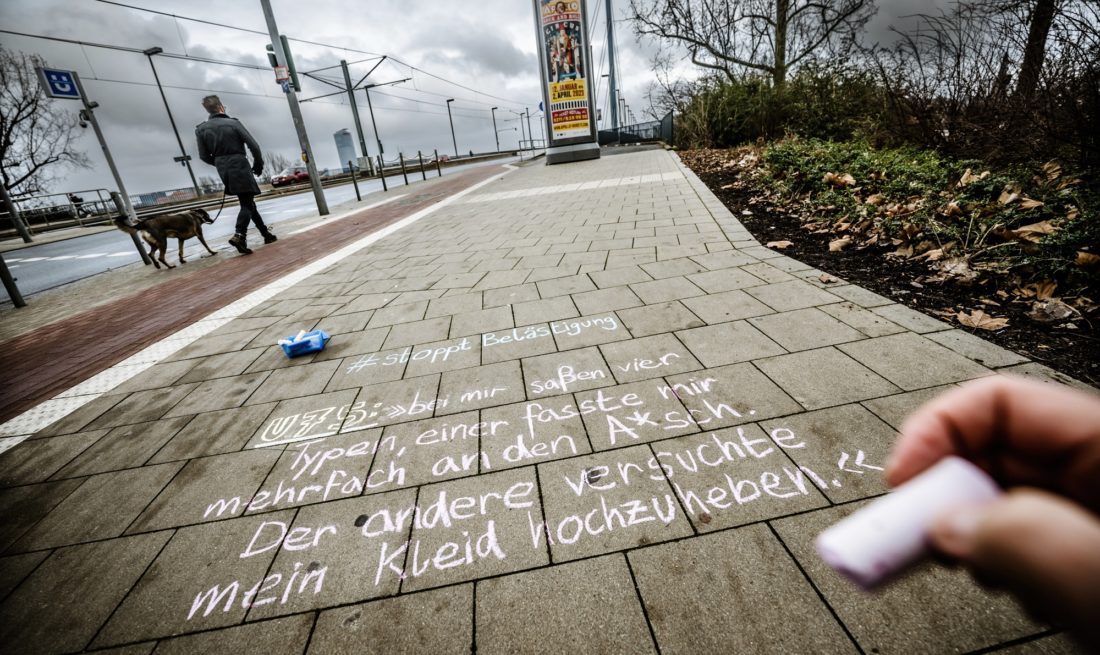 U
CIRCUS
12. JANUAR
2. APRIL 2023
#stoppt Belästigung
U75: »bei mir saßen vier
Typen, einer fasste mir
mehrfach an den A*sch.
Der andere versuchte
mein Kleid hochzuheben.«